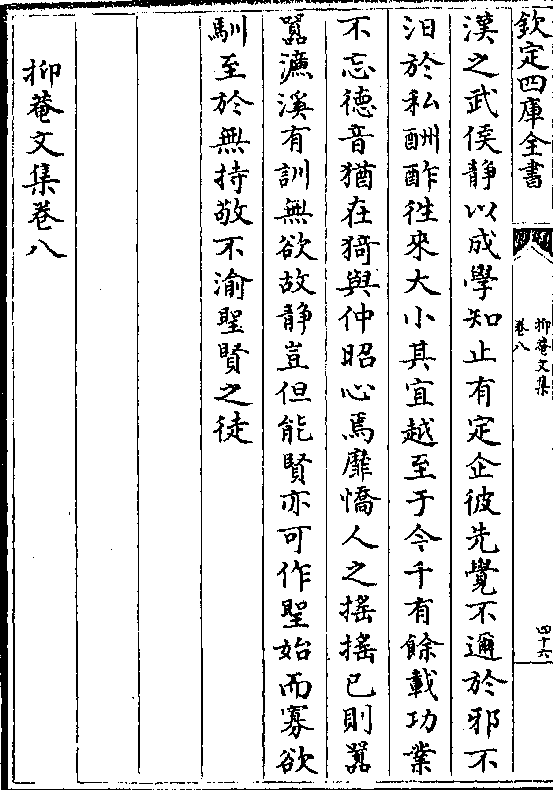 欽定四庫全書
抑菴文集
卷八
四十六
漢之武侯靜以成學知止有定企彼先覺不邇於邪不
汨於私酬酢徃來大小其宜越至于今千有餘載功業
不忘德音猶在猗與仲昭心焉靡憍人之搖搖已則囂
囂濂溪有訓無欲故靜豈但能賢亦可作聖始而寡欲
馴至於無持敬不渝聖賢之徒
抑菴文集卷八